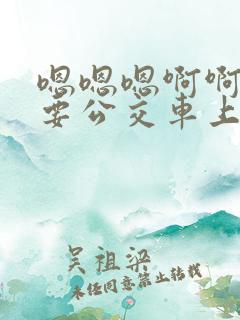 嗯嗯嗯啊啊
要公交車上
吴祖梁
未任同意禁止转载